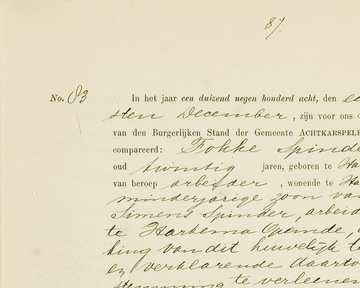 87.
No. 83
In het jaar een duizend negen honderd acht, den
sten December, zijn voor ons
van den Burgerlijken Stand der Gemeente ACHTKARSPEL
compareerd: Fokke Spinde
oud twintig jaren, geboren te Ha
van beroep arbeider, wonende te Ha
minderjarige zoon van
Simens Spinder, arbeid
te Harkema Opeinde,
king van dit huwelijk t
en verklarende daarto
stemming te verleenen